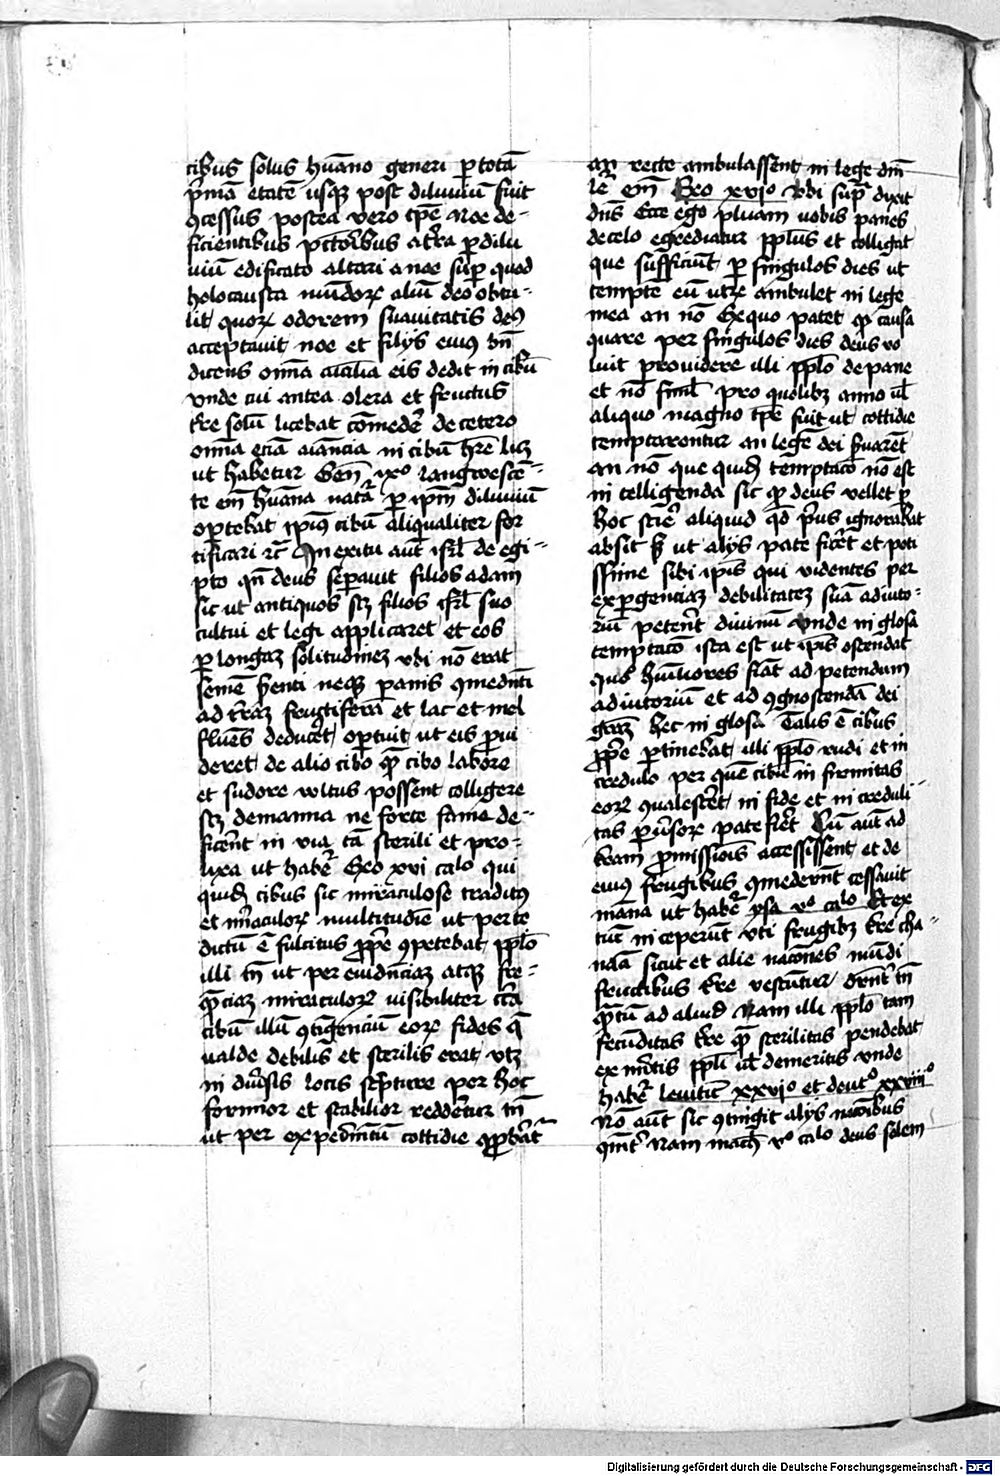 cibus solus hūano generi ꝑ totā
p̄mā etatē usqꝫ post diluuiū fuit
ꝯcessus postea vero tꝑe noe de-
ficientibus pctōribus a tr̄ra ꝑ dilu
uiū edificato altari a noe sup̄ quod
holocausta mūdoꝝ aīaliū deo obtu-
lit quoꝝ odorem suauitatis deꝰ
acceptauit noe et filijs eiuꝰ bn̄
dicens om̄ia aīalia eis dedit in cibū
vnde cui antea olera et fructus
tr̄e solū licebat comedē de cetero
om̄ia etiā aīancia in cibū hr̄e lꝫ
ut habetur Gen̄ ixº langwescē-
te em̄ hūana natā ꝑ ip̄m diluuiū
oꝑtebat ipiꝰ cibū aliqualiter for
tificari rc̄ In exitu aūt isrl̄ de egi-
pto qn̄ deus seꝑauit filios adam
sic ut antiquos scꝫ filios isrl̄ suo
cultui et legi applicaret et eos
ꝑ longaꝫ solitudineꝫ vbi nō erat
semē neqꝫ panis ꝯmedn̄ti
ad tr̄aꝫ frugiferā et lac et mel
fluēs deducēt oꝑtuit ut eis ꝓui
deret de alio cibo quē cibo labore
et sudore vultus possent colligere
scꝫ de manna ne forte fame de-
ficēnt in via tā sterili et pro-
lixa ut habē Exo xvi calo qui
quidē cibus sic miraculose traditꝰ
et mīraculoꝝ multitudīe ut per te
dictū ē fulcitus ꝓpe ꝯpetebat pplō
illi tn̄ ut per euidēnciaꝫ atqꝫ fre-
quēciaꝫ miraculoꝝ visibiliter cc̄a
cibū illū ꝯtīgenciū eoꝝ fides q̄
valde debilis et sterilis erat vtꝫ
in dīuersis locis sc̄pture per hoc
formior et stabilior reddētur tn̄
ut per expedimētū cottidie ꝓbēt
an recte ambulassent in lege dn̄i
le em̄ Exo xvjº Vbi supͣ dixit
dn̄s Ecce ego pluam vobis panes
de celo egrediatur pplus et colligat
que sufficiūt ꝑ singulos dies ut
tempte eū utꝝ ambulet in lege
mea an nō Ex quo patet q̄ causa
quare per singulos dies deus vo
luit prouidere illi pplō de pane
et nō siml̄ pro quolibꝫ anno ul̄
aliquo magno tꝑe fuit ut cottidie
temptarentur an legē dei s̄uarēt
an nō que quidē temptacō nō est
in telligenda sic q̄ deus vellet ꝑ
hoc scīre aliquid qd̄ p̄us ignorabat
absit s̄ ut alijs pate ficēt et poti
ssime sibi ipīs qui videntes per
exꝑgenciaꝫ debilitateꝫ suā adiuto-
riū petērt diuinū vnde in glosa
temptacō ista est ut ipīs ostendat
quē hūiliores fiāt ad petendum
adiutorium et ad ꝯgnoscendā dei
grāꝫ hec in glosa Talis ē cibus
ꝓpe ꝑtinebat illi pplō rudi et in
credulo per quē cibū in firmitas
eoꝝ ꝯualescēt in fide et in creduli-
tas ꝑuersoꝝ pate fiēt Cū aūt ad
terram ꝓmissionis accessissent et de
eiuꝰ frugibus ꝯmederūt cessauit
māna ut habē ysa vº calo Et ex
tūc in ceperūt vti frugibꝫ tr̄e cha-
naā sicut et alie nacōnes mūdi
fructibus tr̄e vestūtur dr̄nt tn̄
quātū ad aliud Nam illi pplō tam
fecūditas tr̄e quā sterilitas pendebat
ex meritis ppli ul̄ demeritis vnde
habē leuiticꝰ xxvjº et deutº xxviijº
Nō aūt sic ꝯtingit alijs nacōnibus
Nam math̄ vº calo deus solem
Digitalisierung gefördert durch die Deutsche Forschungsgemeinschaft - DFG